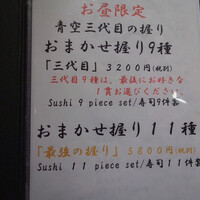 お昼限定
青空三代目の握り
おまかせ握り9種
「三代目」3200円(税別)
三代目9種は、最後にお好きな
1貫お選びください。
Sushi 9 piece set/寿司9件套
おまかせ握り11種
「最強の握り」5800円(税別)
Sushi 11 piece set/寿司11件套